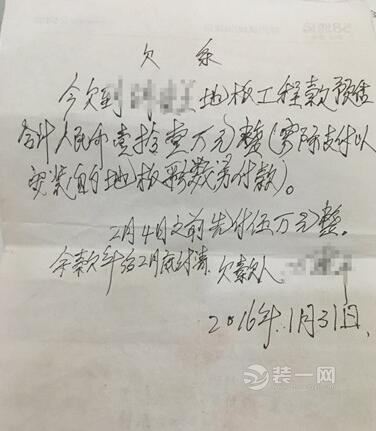 欠条
今欠到 地板工程款预估
合计人民币壹拾壹万元整(实际支付以
安装的地板形数算付款)。
2月4日之前先付伍万元整。
余款欠年给2月底付清 欠款人
2016年.1月31日.
装一网